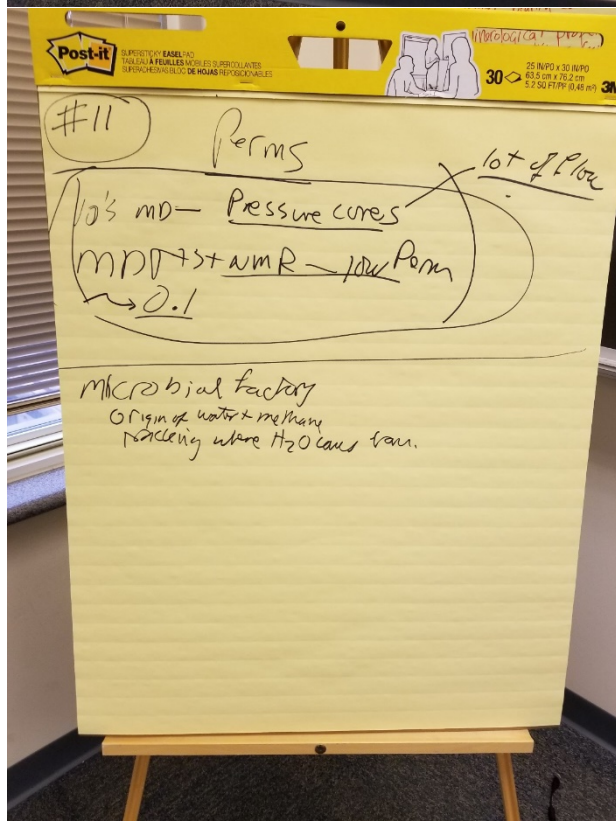 Post-it
SUPERSTICKY EASEL PAD
TABLEAU À FEUILLES MOBILES SUPERCOLLANTES
SUPERADHESIVAS BLOC DE HOJAS REPOSICIONABLES
30
25 IN/PO x 30 IN/PO
63.5 cm x 76.2 cm
5.2 SQ FT/PP (0,48 m²)
3M
#11
Perms
lot of flow
10's mD — Pressure cores
MDT + NMR — low Perm
→ 0.1
microbial factory
Origin of water + methane
where H2O